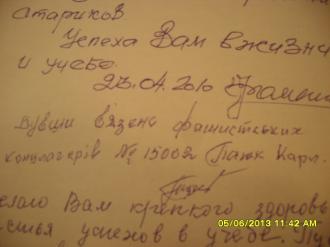 стариков.
Успеха Вам в жизни
и учебе.
23.04.2010
Бувши вязень фашистських
концлагерів № 15002 Панюк Карл.
елаю Вам крепкого здоровь
астья успехов в учебе.
05/06/2013 11:42 AM